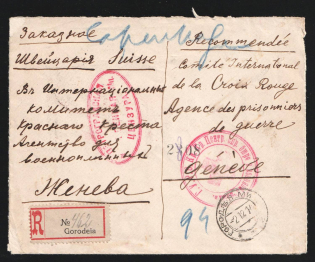 Заказное
Recommendée
Швейцарія Suisse
Comité International
de la Croix Rouge
Въ Интернаціональный
комитетъ
Agence des prisonniers
Краснаго Креста
de guerre
Агентство для
Военноплѣнныхъ
Genève
Женева
94
R
№ 462
Gorodeia